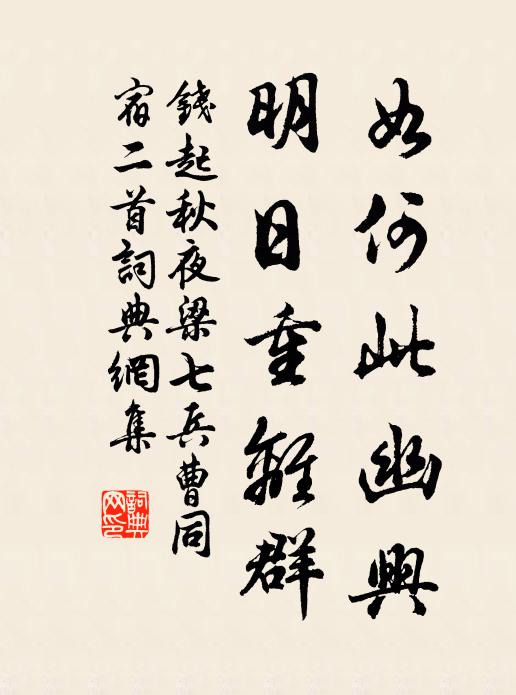 如何此幽興
明日重離群
錢起秋夜梁七兵曹同
宿二首詞典網集
詞典網印